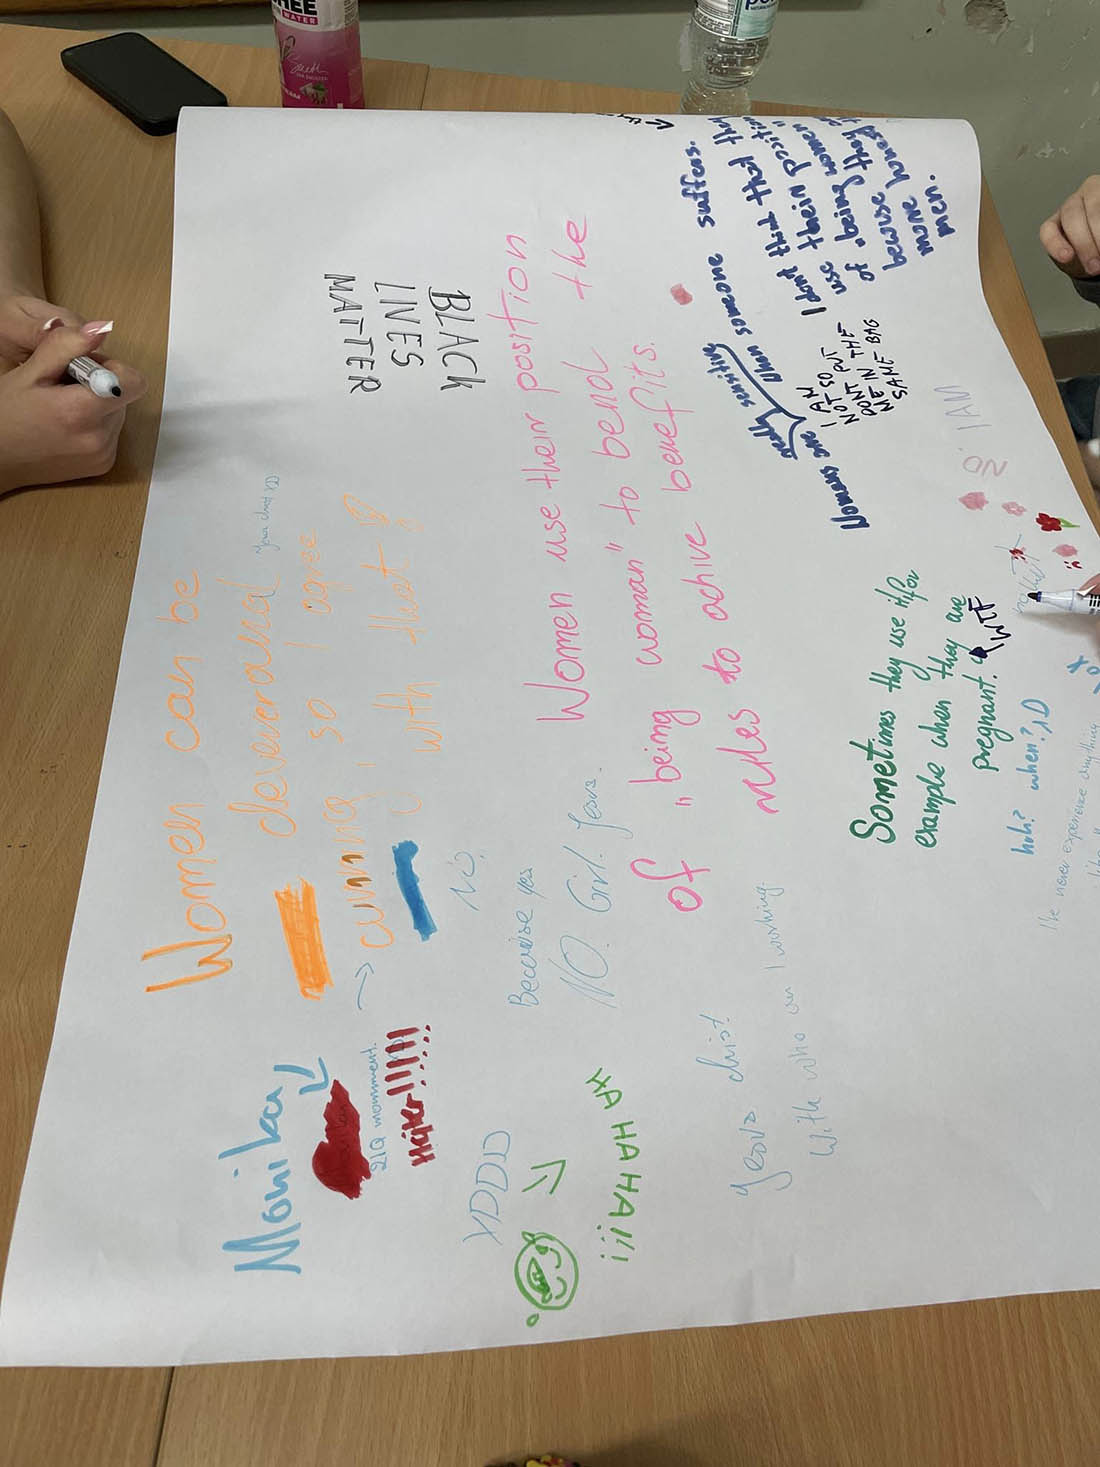 Women can be
cleverand
cunning, so I agree
with that
Monika
21Q momnment.
Hajter!!!!!!
NO.
BLACK
LIVES
MATTER
Women use their position
of "being woman" to bend the
rules to achive benefits.
Because yes
NO. Girl. Jesus.
XDDD
HA HAHAHA!!!
With who am I working.
Womans are really sensitive when someone suffers.
I AM
NOT SO
DONT PUT
ME IN THE
SAME BAG
I dont think that they
use their position
of "being women"
becouse they
more
men.
NO. IAM
Sometimes they use it for
example when they are
pregnant.
WTF
huh? when? ;D
I've never experience anything
WATER